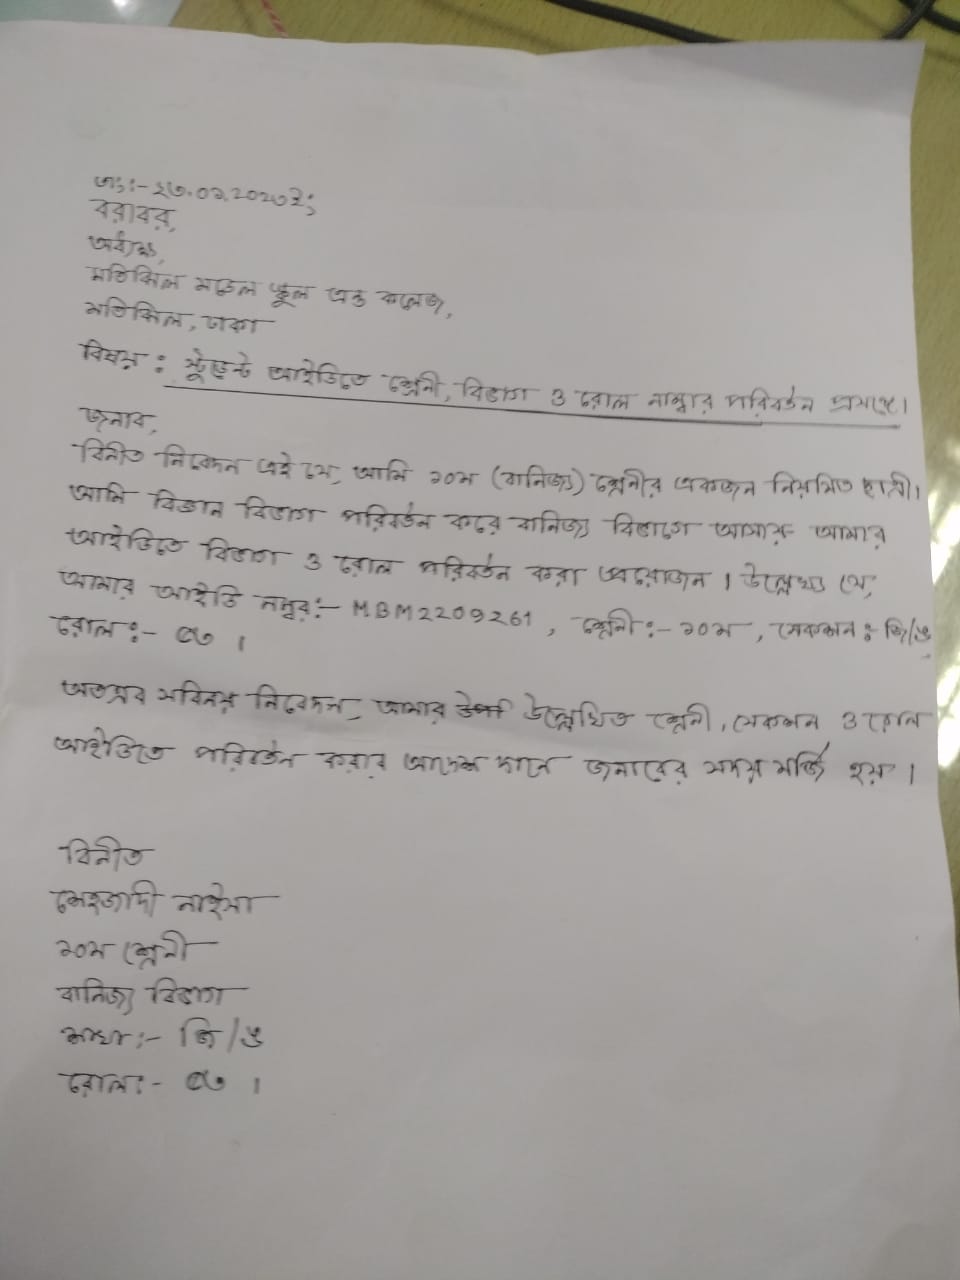 তাং:- ২৩.০১.২০২৩ ইং
বরাবর,
অধ্যক্ষ,
মতিঝিল মডেল স্কুল এন্ড কলেজ,
মতিঝিল, ঢাকা
বিষয় : স্টুডেন্ট আইডিতে শ্রেনী, বিভাগ ও রোল নাম্বার পরিবর্তন প্রসঙ্গে।
জনাব,
বিনীত নিবেদন এই যে, আমি ১০ম (বানিজ্য) শ্রেনীর একজন নিয়মিত ছাত্রী।
আমি বিজ্ঞান বিভাগ পরিবর্তন করে বানিজ্য বিভাগে আসায় আমার
আইডিতে বিভাগ ও রোল পরিবর্তন করা প্রয়োজন। উল্লেখ্য যে,
আমার আইডি নম্বর:- MBM2209261, শ্রেনী:- ১০ম, সেকশন: জি/৬
রোল:- ৫৩।
অতএব সবিনয় নিবেদন, আমার উল্লেখিত শ্রেনী, সেকশন ও রোল
আইডিতে পরিবর্তন করার আদেশ দানে জনাবের সদয় মর্জি হয়।
বিনীত
মেহজাদী নাইসা
১০ম শ্রেনী
বানিজ্য বিভাগ
শাখা:- জি/৬
রোল:- ৫৩।